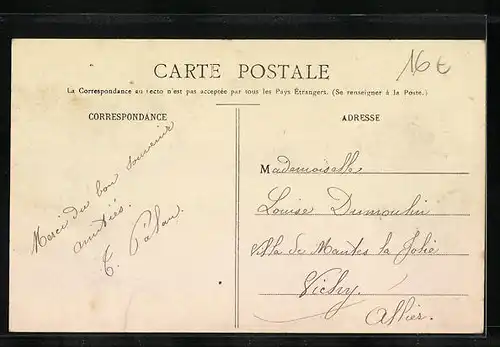 16 €
CARTE POSTALE
La Correspondance au recto n'est pas acceptée par tous les Pays Étrangers. (Se renseigner à la Poste.)
CORRESPONDANCE
Merci du bon souvenir
amitiés.
ADRESSE
Mademoiselle
Louise Dumoulin
Villa de Mantes la Jolie
Vichy.
Allier.